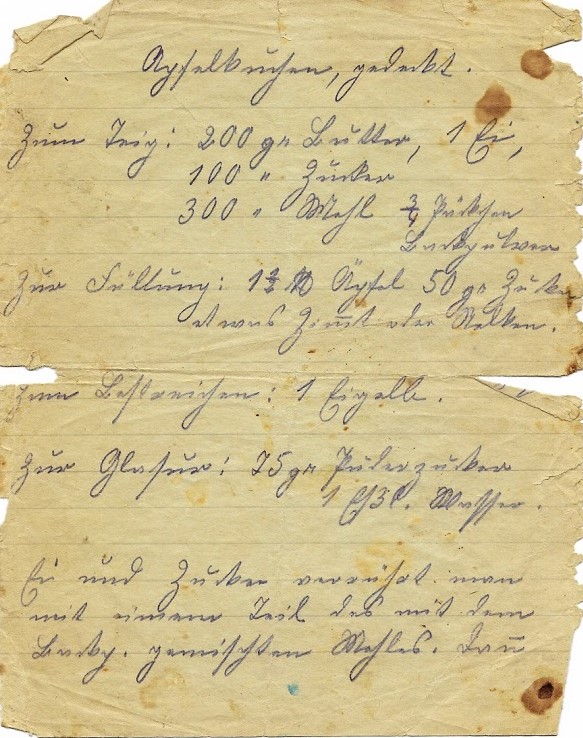 Apfelkuchen, gedeckt.
Zum Teig: 200 gr Butter, 1 Ei,
100 " Zucker
300 " Mehl 3/4 Päckchen
Backpulver
Zur Füllung: 1 1/2 ℔ Äpfel 50 gr Zucker
etwas Zim̅t oder Nelken.
Zum Bestreichen: 1 Eigelb.
Zur Glasur: 75 gr Puderzucker
1 Eßl. Wasser.
Ei und Zucker verrührt man
mit einem Teil des mit dem
Backp. gemischten Mehles. Dan̅